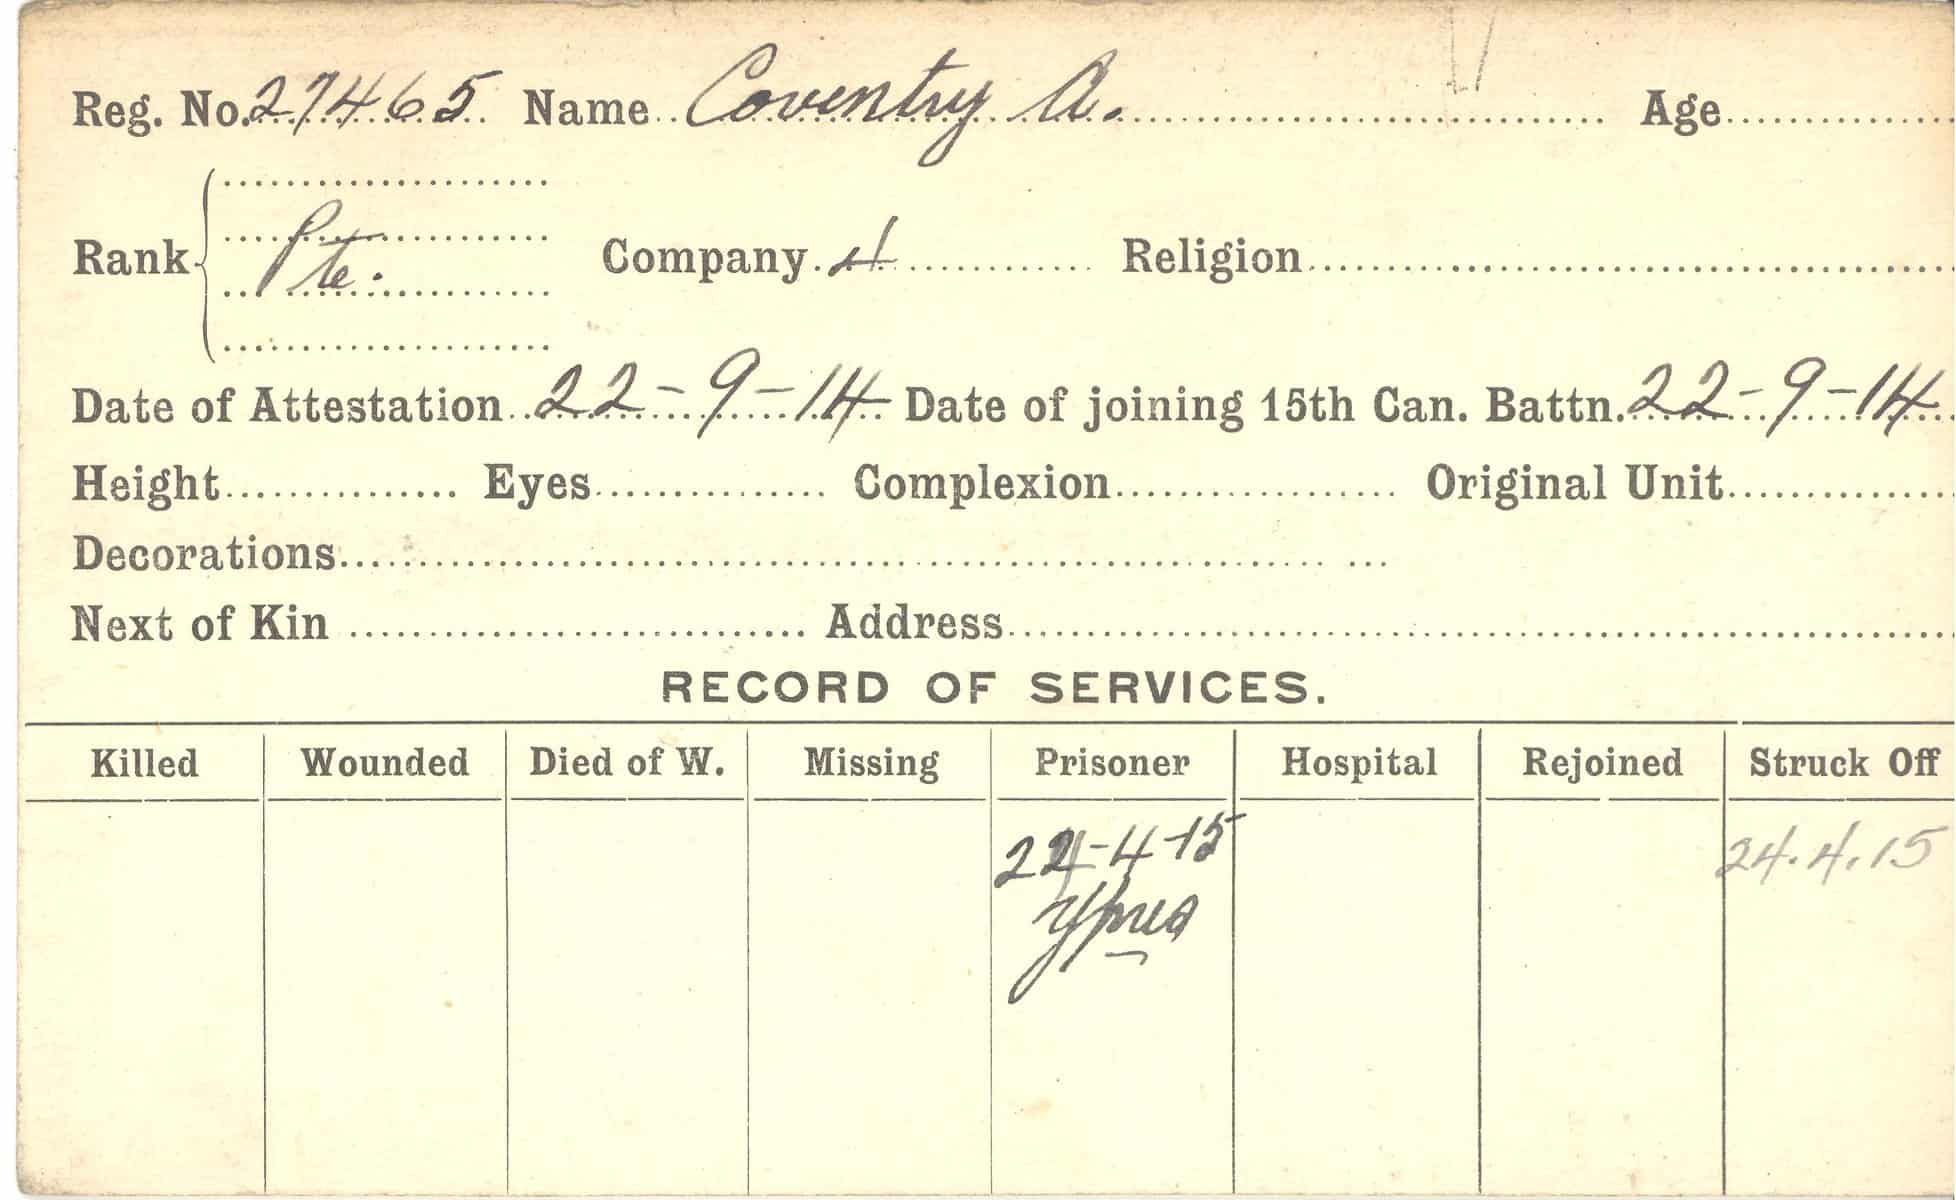 Reg. No. 27465 Name Coventry A. Age
Rank Pte. Company 4 Religion
Date of Attestation 22-9-14 Date of joining 15th Can. Battn. 22-9-14
Height Eyes Complexion Original Unit
Decorations
Next of Kin Address
RECORD OF SERVICES.
Killed Wounded Died of W. Missing Prisoner Hospital Rejoined Struck Off
-4-15 24.4.15
Ypres